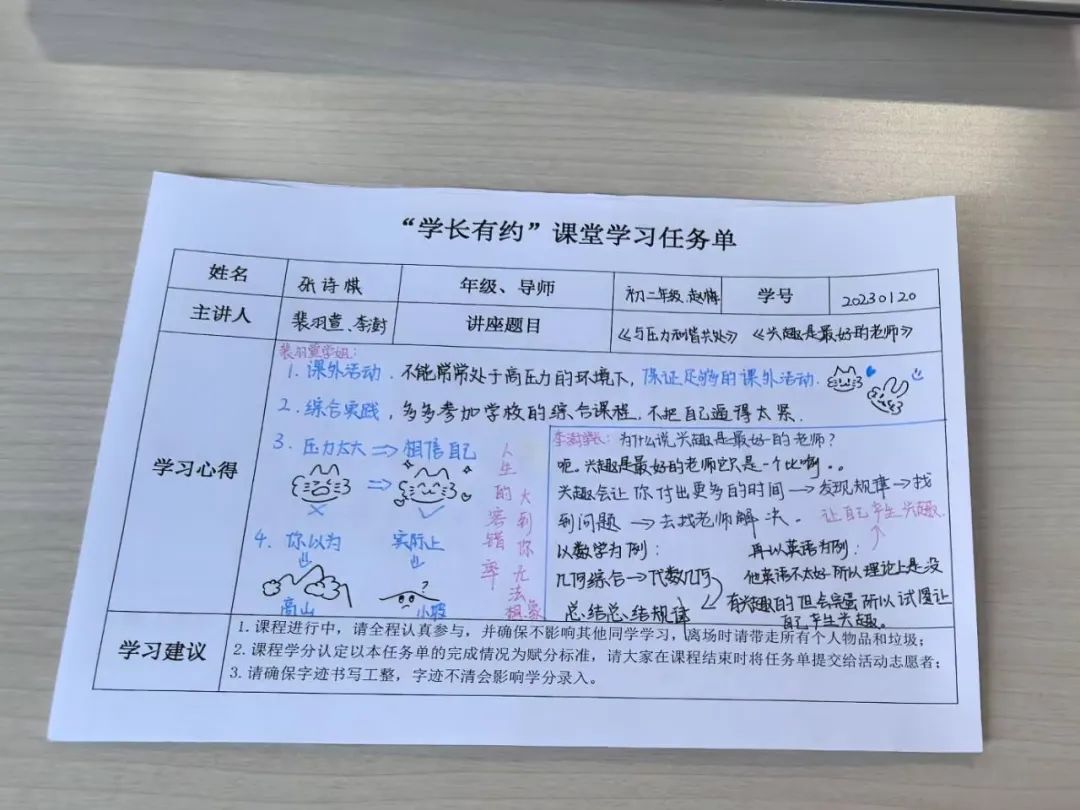 “学长有约”课堂学习任务单
姓名 张诗棋 年级、导师 初二年级、赵梅 学号 20230120
主讲人 裴羽萱、李澍 讲座题目 《与压力和谐共处》 《兴趣是最好的老师》
学习心得
裴羽萱学姐:
1. 课外活动. 不能常常处于高压力的环境下, 保证足够的课外活动.
2. 综合实践, 多多参加学校的综合课程, 不把自己逼得太累.
3. 压力太大 ⇒ 相信自己
4. 你以为 实际上
高山 ? 小坡
人生的容错率
大到你无法想象
李澍学长: 为什么说兴趣是最好的老师?
呃。兴趣是最好的老师它只是一个比喻。。
兴趣会让你付出更多的时间 → 发现规律 → 找
到问题 → 去找老师解决. 让自己产生兴趣.
以数学为例:
几何综合 → 代数几何
总结总结规律
再以英语为例:
他英语不太好所以理论上是没
有兴趣的 但会完蛋 所以试图让
自己产生兴趣.
学习建议
1. 课程进行中，请全程认真参与，并确保不影响其他同学学习，离场时请带走所有个人物品和垃圾；
2. 课程学分认定以本任务单的完成情况为赋分标准，请大家在课程结束时将任务单提交给活动志愿者；
3. 请确保字迹书写工整，字迹不清会影响学分录入。